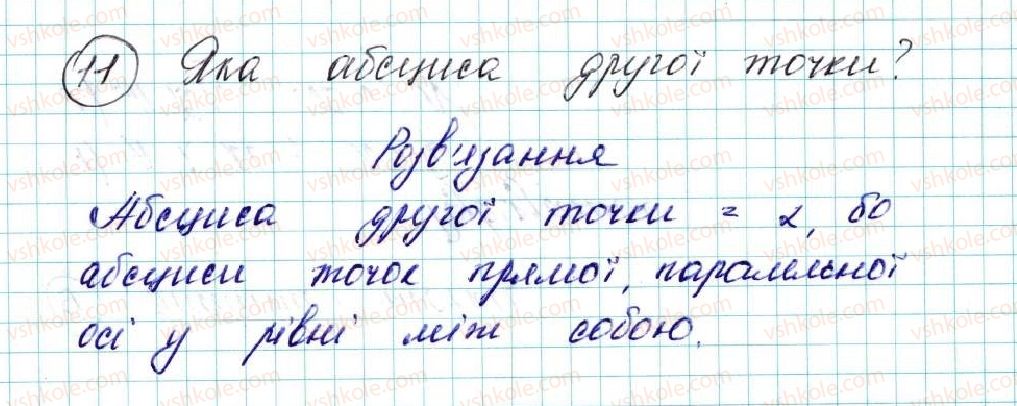 11 Яка абсциса другої точки?
Розв'язання
Абсциса другої точки = 2, бо
абсциси точок прямої, паралельної
осі у рівні між собою.